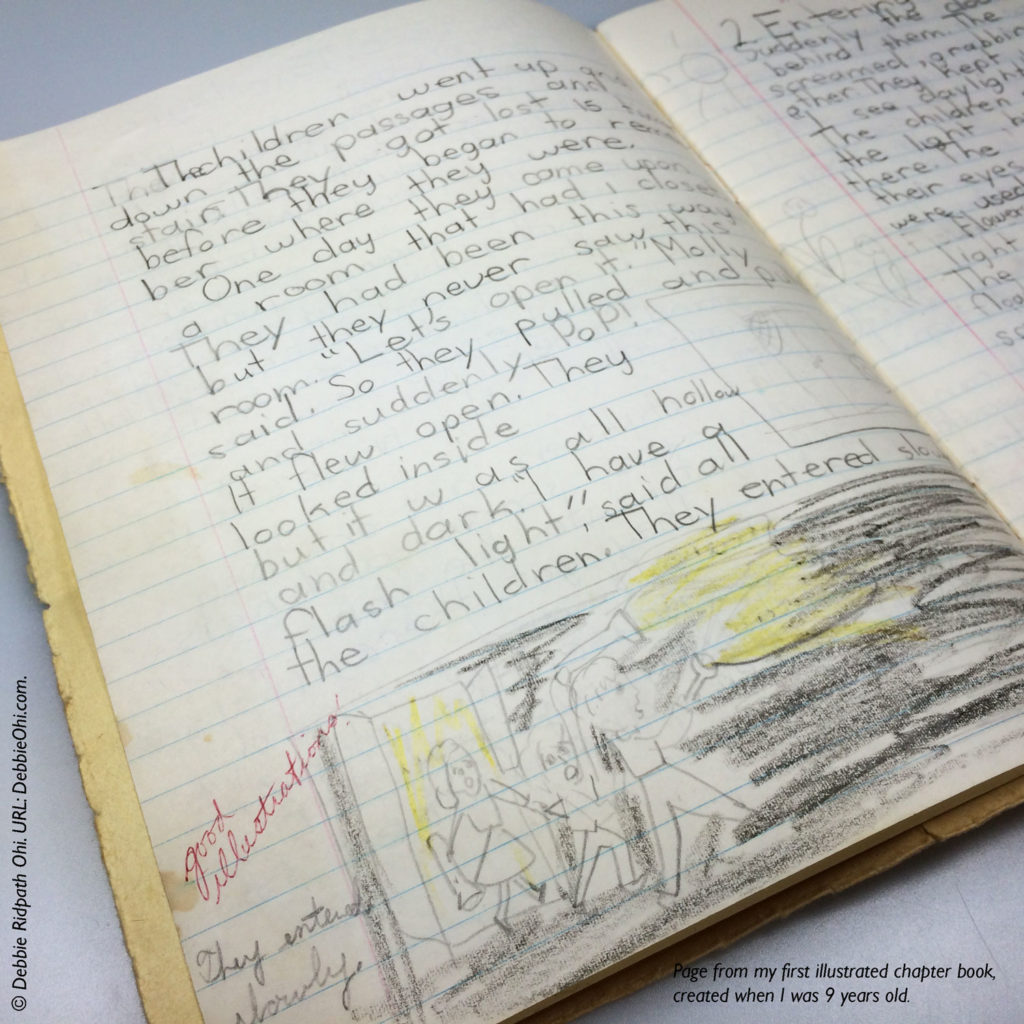 The children went up
down the passages and
stair. They got lost
before they began to
ber where they were.
One day they came upon
a room that had
They had been this way
but they never saw this
room. "Let's open it." Molly
said. So they pulled and
and suddenly POP!
It flew open. They
looked inside
but it was all hollow
and dark. "I have a
flash light", said all
the children. They entered
good
illustrations!
They entered
slowly.
2. Entering
Suddenly the
behind them. The
screamed, grabbing
other. They kept
I see daylight
The children
the light
there. The
their eyes
were used
flower
light
The
© Debbie Ridpath Ohi. URL: DebbieOhi.com.
Page from my first illustrated chapter book,
created when I was 9 years old.